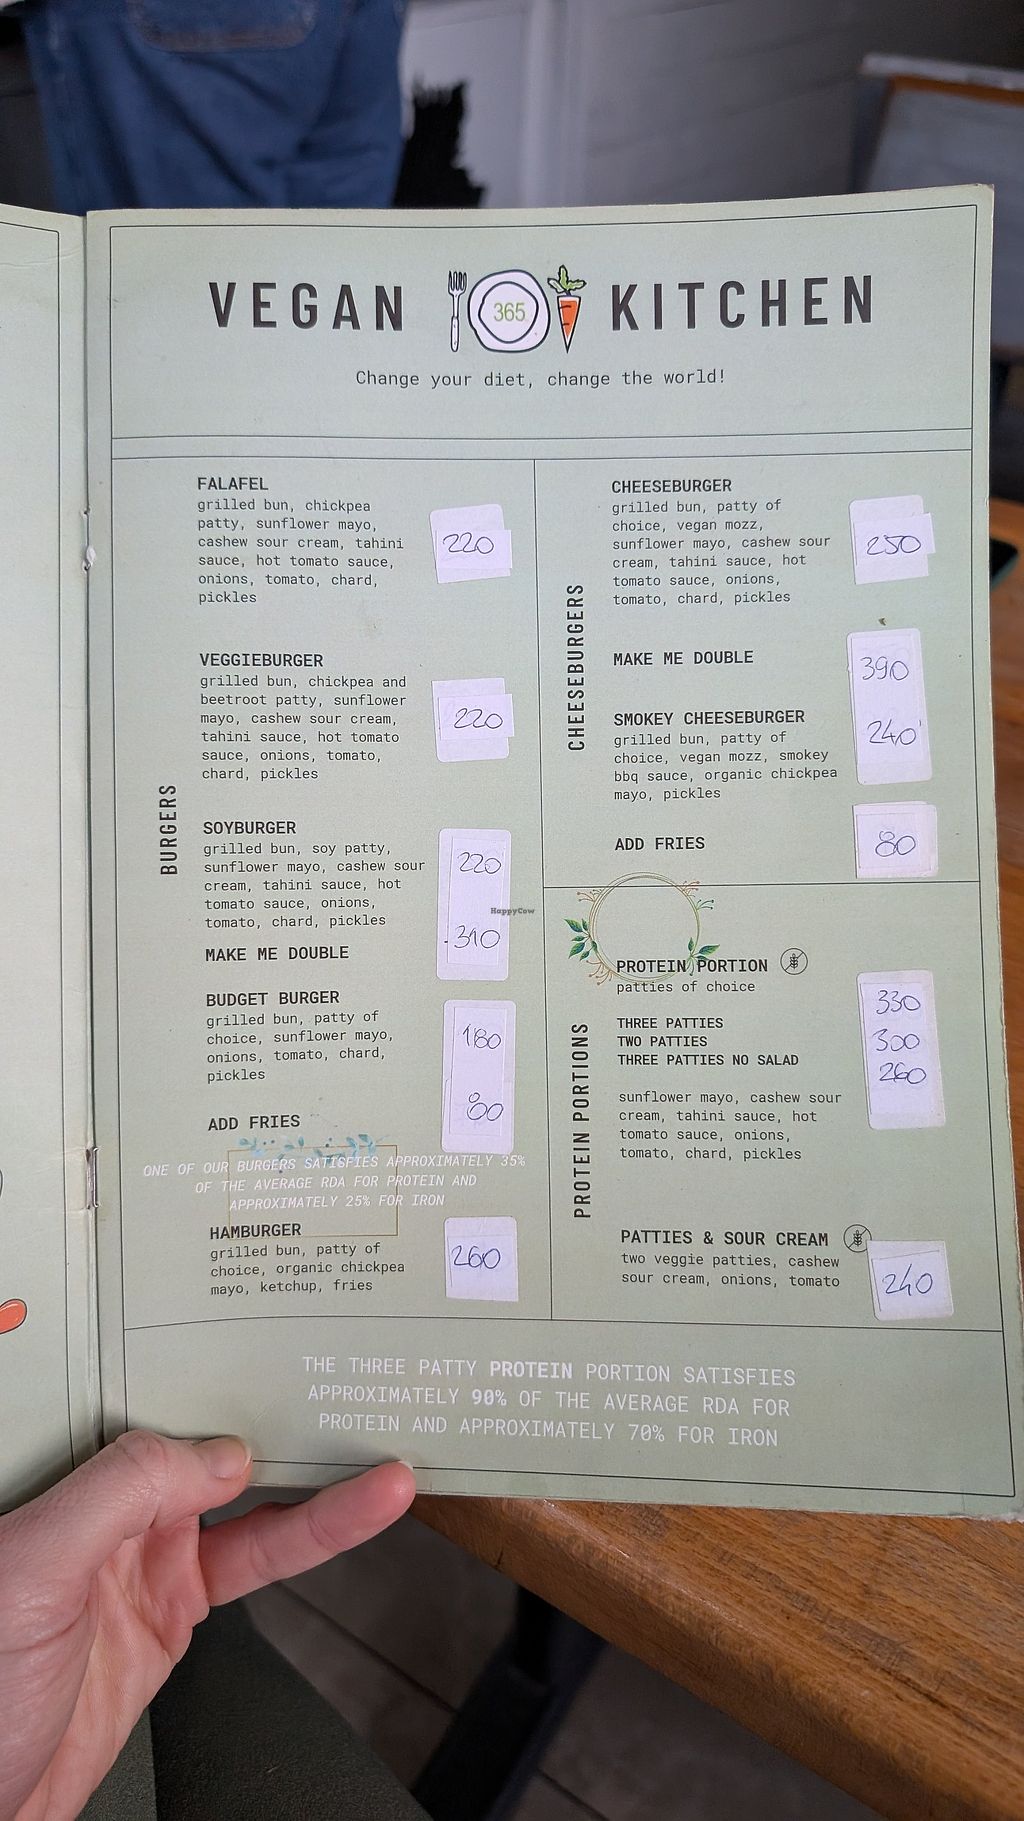 VEGAN 365 KITCHEN
Change your diet, change the world!
BURGERS
FALAFEL
grilled bun, chickpea
patty, sunflower mayo,
cashew sour cream, tahini
sauce, hot tomato sauce,
onions, tomato, chard,
pickles
220
VEGGIEBURGER
grilled bun, chickpea and
beetroot patty, sunflower
mayo, cashew sour cream,
tahini sauce, hot tomato
sauce, onions, tomato,
chard, pickles
220
SOYBURGER
grilled bun, soy patty,
sunflower mayo, cashew sour
cream, tahini sauce, hot
tomato sauce, onions,
tomato, chard, pickles
220
MAKE ME DOUBLE
310
BUDGET BURGER
grilled bun, patty of
choice, sunflower mayo,
onions, tomato, chard,
pickles
180
ADD FRIES
80
ONE OF OUR BURGERS SATISFIES APPROXIMATELY 35%
OF THE AVERAGE RDA FOR PROTEIN AND
APPROXIMATELY 25% FOR IRON
HAMBURGER
grilled bun, patty of
choice, organic chickpea
mayo, ketchup, fries
260
CHEESEBURGERS
CHEESEBURGER
grilled bun, patty of
choice, vegan mozz,
sunflower mayo, cashew sour
cream, tahini sauce, hot
tomato sauce, onions,
tomato, chard, pickles
250
MAKE ME DOUBLE
390
SMOKEY CHEESEBURGER
grilled bun, patty of
choice, vegan mozz, smokey
bbq sauce, organic chickpea
mayo, pickles
240
ADD FRIES
80
HappyCow
PROTEIN PORTIONS
PROTEIN PORTION
patties of choice
THREE PATTIES 330
TWO PATTIES 300
THREE PATTIES NO SALAD 260
sunflower mayo, cashew sour
cream, tahini sauce, hot
tomato sauce, onions,
tomato, chard, pickles
PATTIES & SOUR CREAM
two veggie patties, cashew
sour cream, onions, tomato
240
THE THREE PATTY PROTEIN PORTION SATISFIES
APPROXIMATELY 90% OF THE AVERAGE RDA FOR
PROTEIN AND APPROXIMATELY 70% FOR IRON